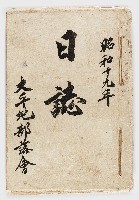 昭和十九年
日誌
大平地部落會